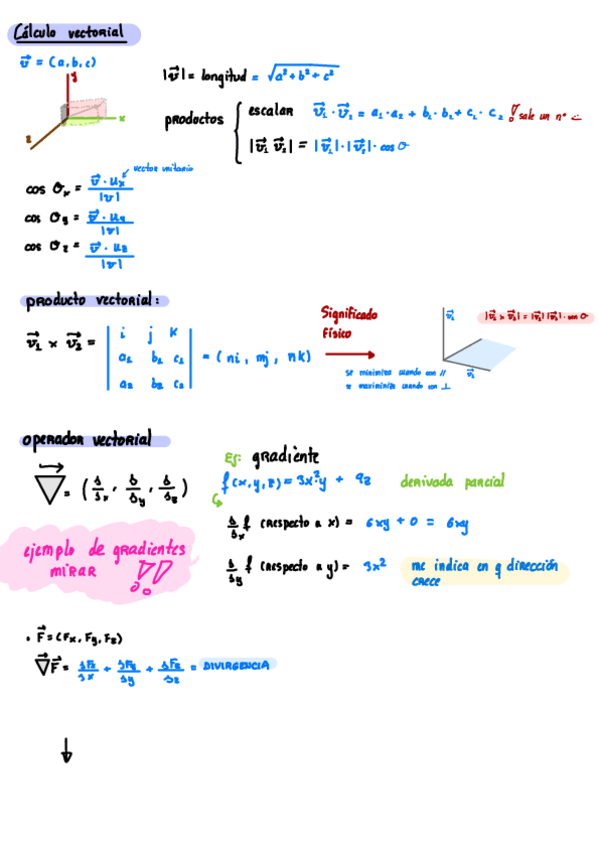 Cálculo vectorial
v⃗ = (a,b,c)
y
x
z
|v⃗| = longitud = √a²+b²+c²
productos
escalar v⃗₁ · v⃗₂ = a₁·a₂ + b₁·b₂ + c₁·c₂ ! sale un nº
|v⃗₁ v⃗₂| = |v⃗₁|·|v⃗₂|·cos θ
vector unitario
cos θx = v⃗·ux / |v|
cos θy = v⃗·uy / |v|
cos θz = v⃗·uz / |v|
producto vectorial:
v⃗₁ x v⃗₂ =
i j k
a₁ b₁ c₁
a₂ b₂ c₂
= (ni, mj, nk)
Significado
Físico
v⃗₂
v⃗₁
|v⃗₁ x v⃗₂| = |v⃗₁| |v⃗₂|·sen θ
se minimiza cuando son //
se maximiza cuando son ⊥
operador vectorial
∇ = (δ/δx, δ/δy, δ/δz)
Ej: gradiente
f(x,y,z) = 3x²·y + 9z derivada parcial
δ/δx f (respecto a x) = 6xy + 0 = 6xy
δ/δy f (respecto a y) = 3x² me indica en q dirección
crece
ejemplo de gradientes
mirar !!
· F⃗ = (Fx, Fy, Fz)
∇F⃗ = δFx/δx + δFy/δy + δFz/δz = DIVERGENCIA
↓